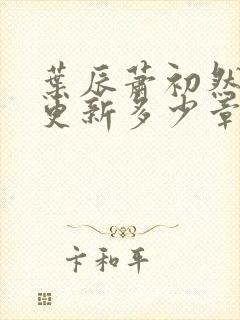 葉辰蕭初然
更新多少章
卞和平